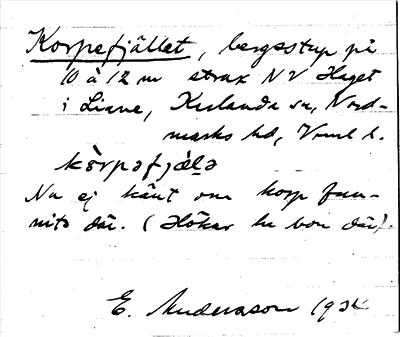 Korpefjället, bergsstup på
10 à 12 m strax NV Haget
i Liane, Karlanda sn, Nord-
marks hd, Vrml l.
kòrpəfjälə
Nu ej känt om korp fun-
nits där. (Hökar ha bon där).
E. Andersson 1934